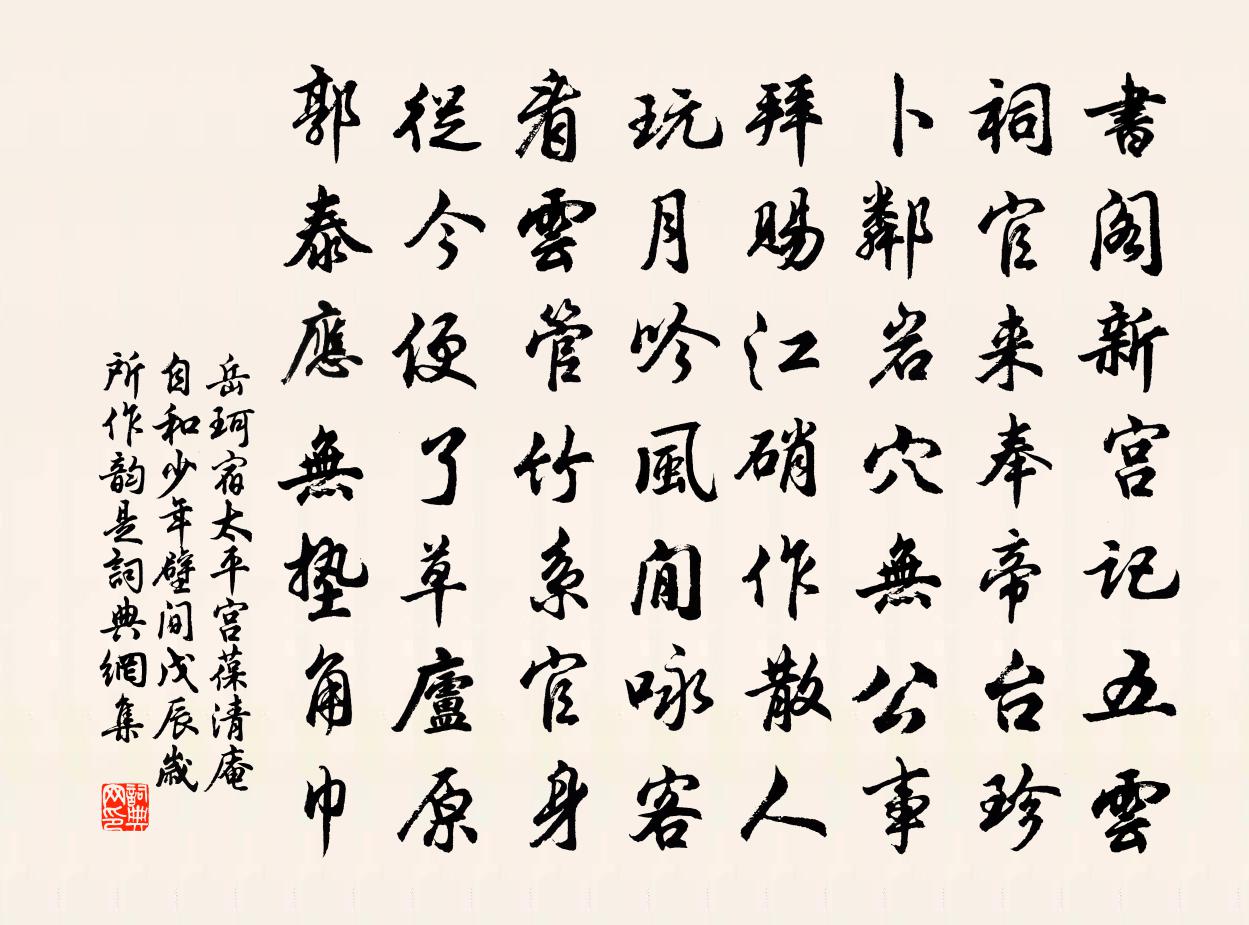 書阁新宫记五雲
祠官来奉帝台珍
卜鄰岩穴無公事
拜賜江硝作散人
玩月吟風閒咏客
看雲管竹系官身
從今便了草廬原
郭泰應無墊角巾
岳珂宿太平宫葆清庵
自和少年壁间戊辰歲
所作韵是詞典網集
詞典网印